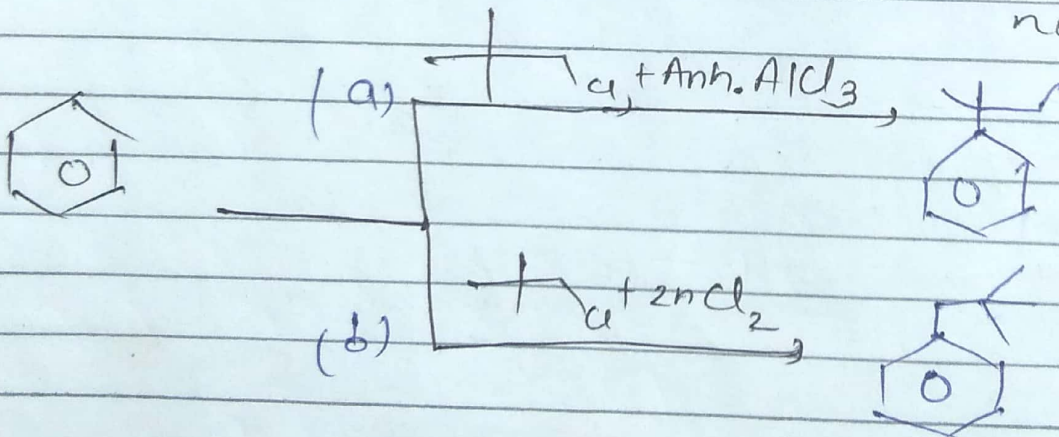 (a) Cl + Anh. AlCl3
(b) Cl + ZnCl2